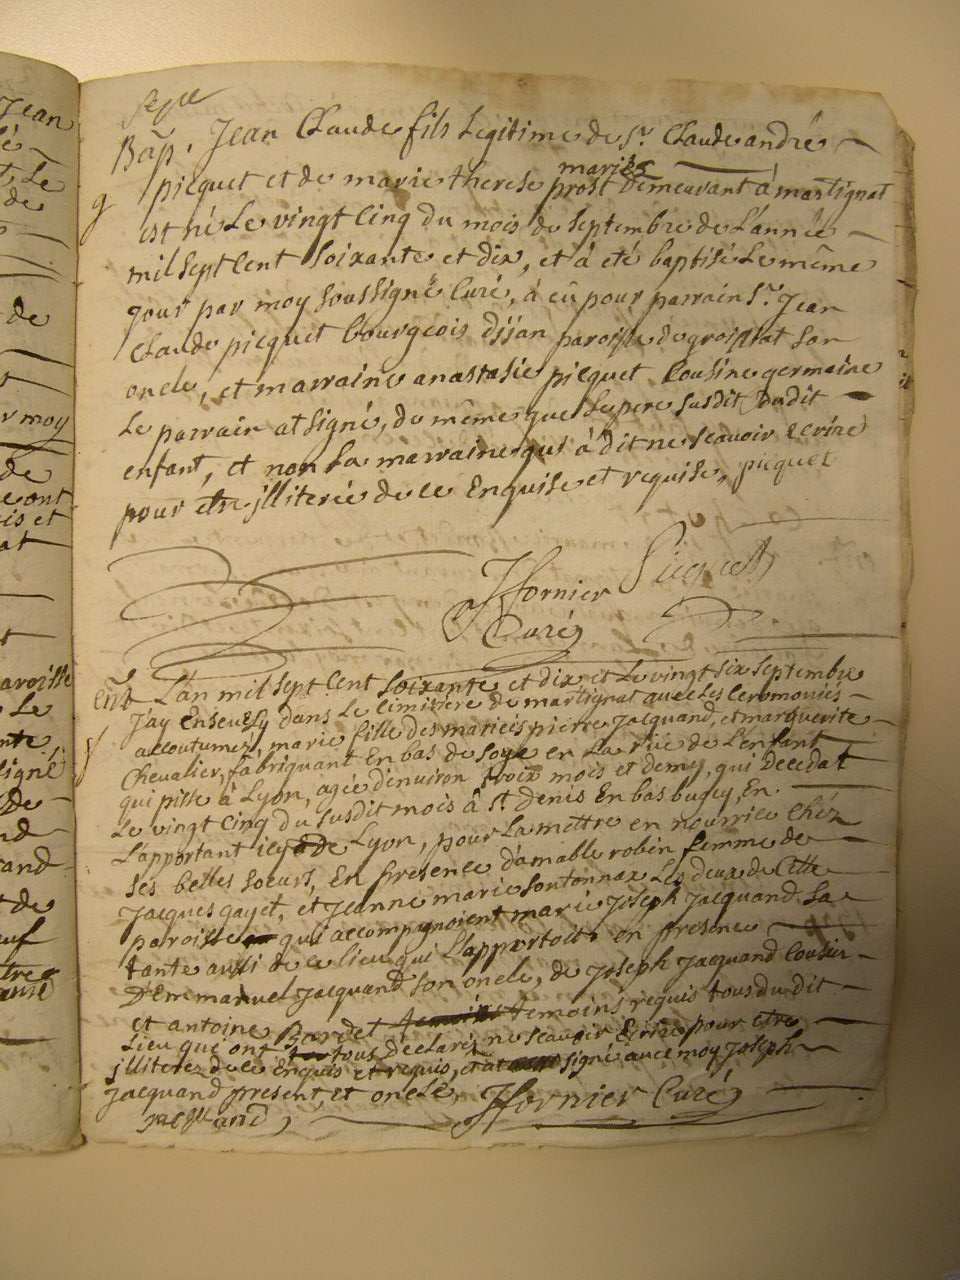 Bap. Jean Claude fils Legitime de Sr. Claude andré
picquet et de marie therese prost mariés demeurant à martignat
est né Le vingt Cinq du mois de septembre de L'année
mil sept Cent soixante et dix, et à eté baptisé Le même
jour par moy soussigné Curé, à eû pour parrain Sr. Jean
Claude picquet bourgeois dijan paroisse de groissiat son
oncle, et marraine anastasie picquet Cousine germaine
Le parrain at signé, de même que Le pere susdit dudit
enfant, et non La marraine qui à dit ne sçavoir ecrire
pour etre jlliterée de ce Enquise et requise, picquet
Picquet
Jfornier
Curé
Ent L'an mil sept Cent soixante et dix et Le vingt six septembre
J'ay Enseuely dans Le Cimitiere de martignat avec Les Ceromonies
accoutumez, marie fille des mariés pierre Jacquand, et marguerite
Chevalier, fabriquant En bas de soye en La rüe de L'enfant
qui pisse à Lyon, agée d'environ trois mois et demy, qui decedat
Le vingt Cinq du susdit mois à St denis En bas bugey, En
L'apportant icy de Lyon, pour La mettre en nourrice Chéz
ses belles soeurs, En presence d'amable robin femme de
Jacques gayet, et Jeanne marie sontonnax Les deux de Cette
paroisse qui accompagnoient marie Joseph Jacquand sa
tante aussi de ce lieu qui L'apportoit en presence
D'Emmanuel Jacquand son oncle, de Joseph Jacquand Cousin
et antoine Bardet temoins requis tous du dit
Lieu que ont tous déclaréz ne sçavoir Ecrire pour etre
jlliterez de ce Enquis et requis, et at signé avec moy Joseph
Jacquand present, et oncle, Jfornier Curé
jacquand